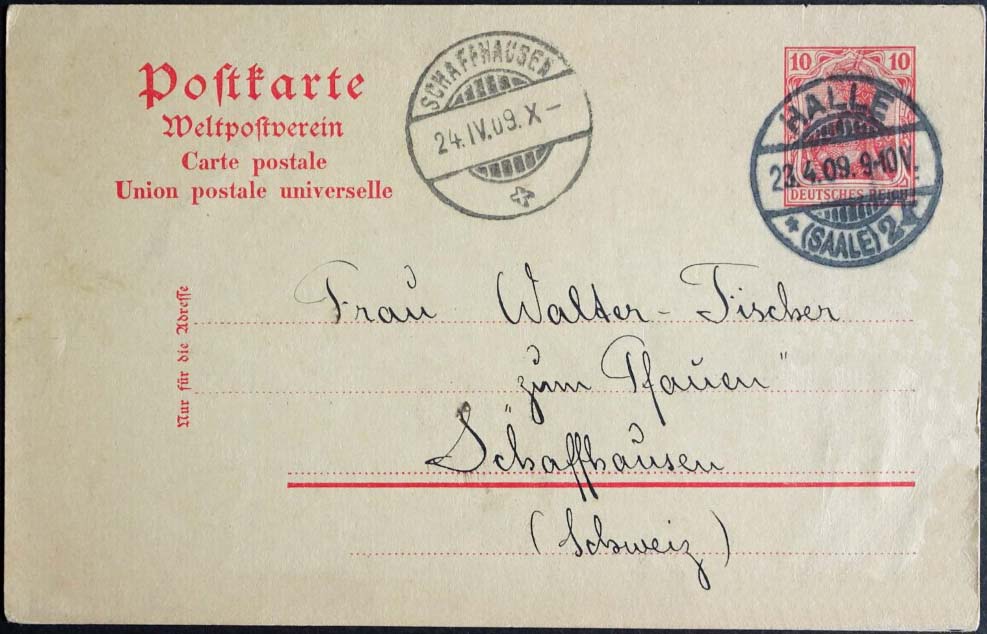 Postkarte
Weltpostverein
Carte postale
Union postale universelle
SCHAFFHAUSEN
24.IV.09.X–
10 10
DEUTSCHES REICH
HALLE
23.4.09.9-10V.
* (SAALE) 2
Nur für die Adresse
Frau Walter-Fischer
zum Pfauen"
"Schaffhausen
(Schweiz)